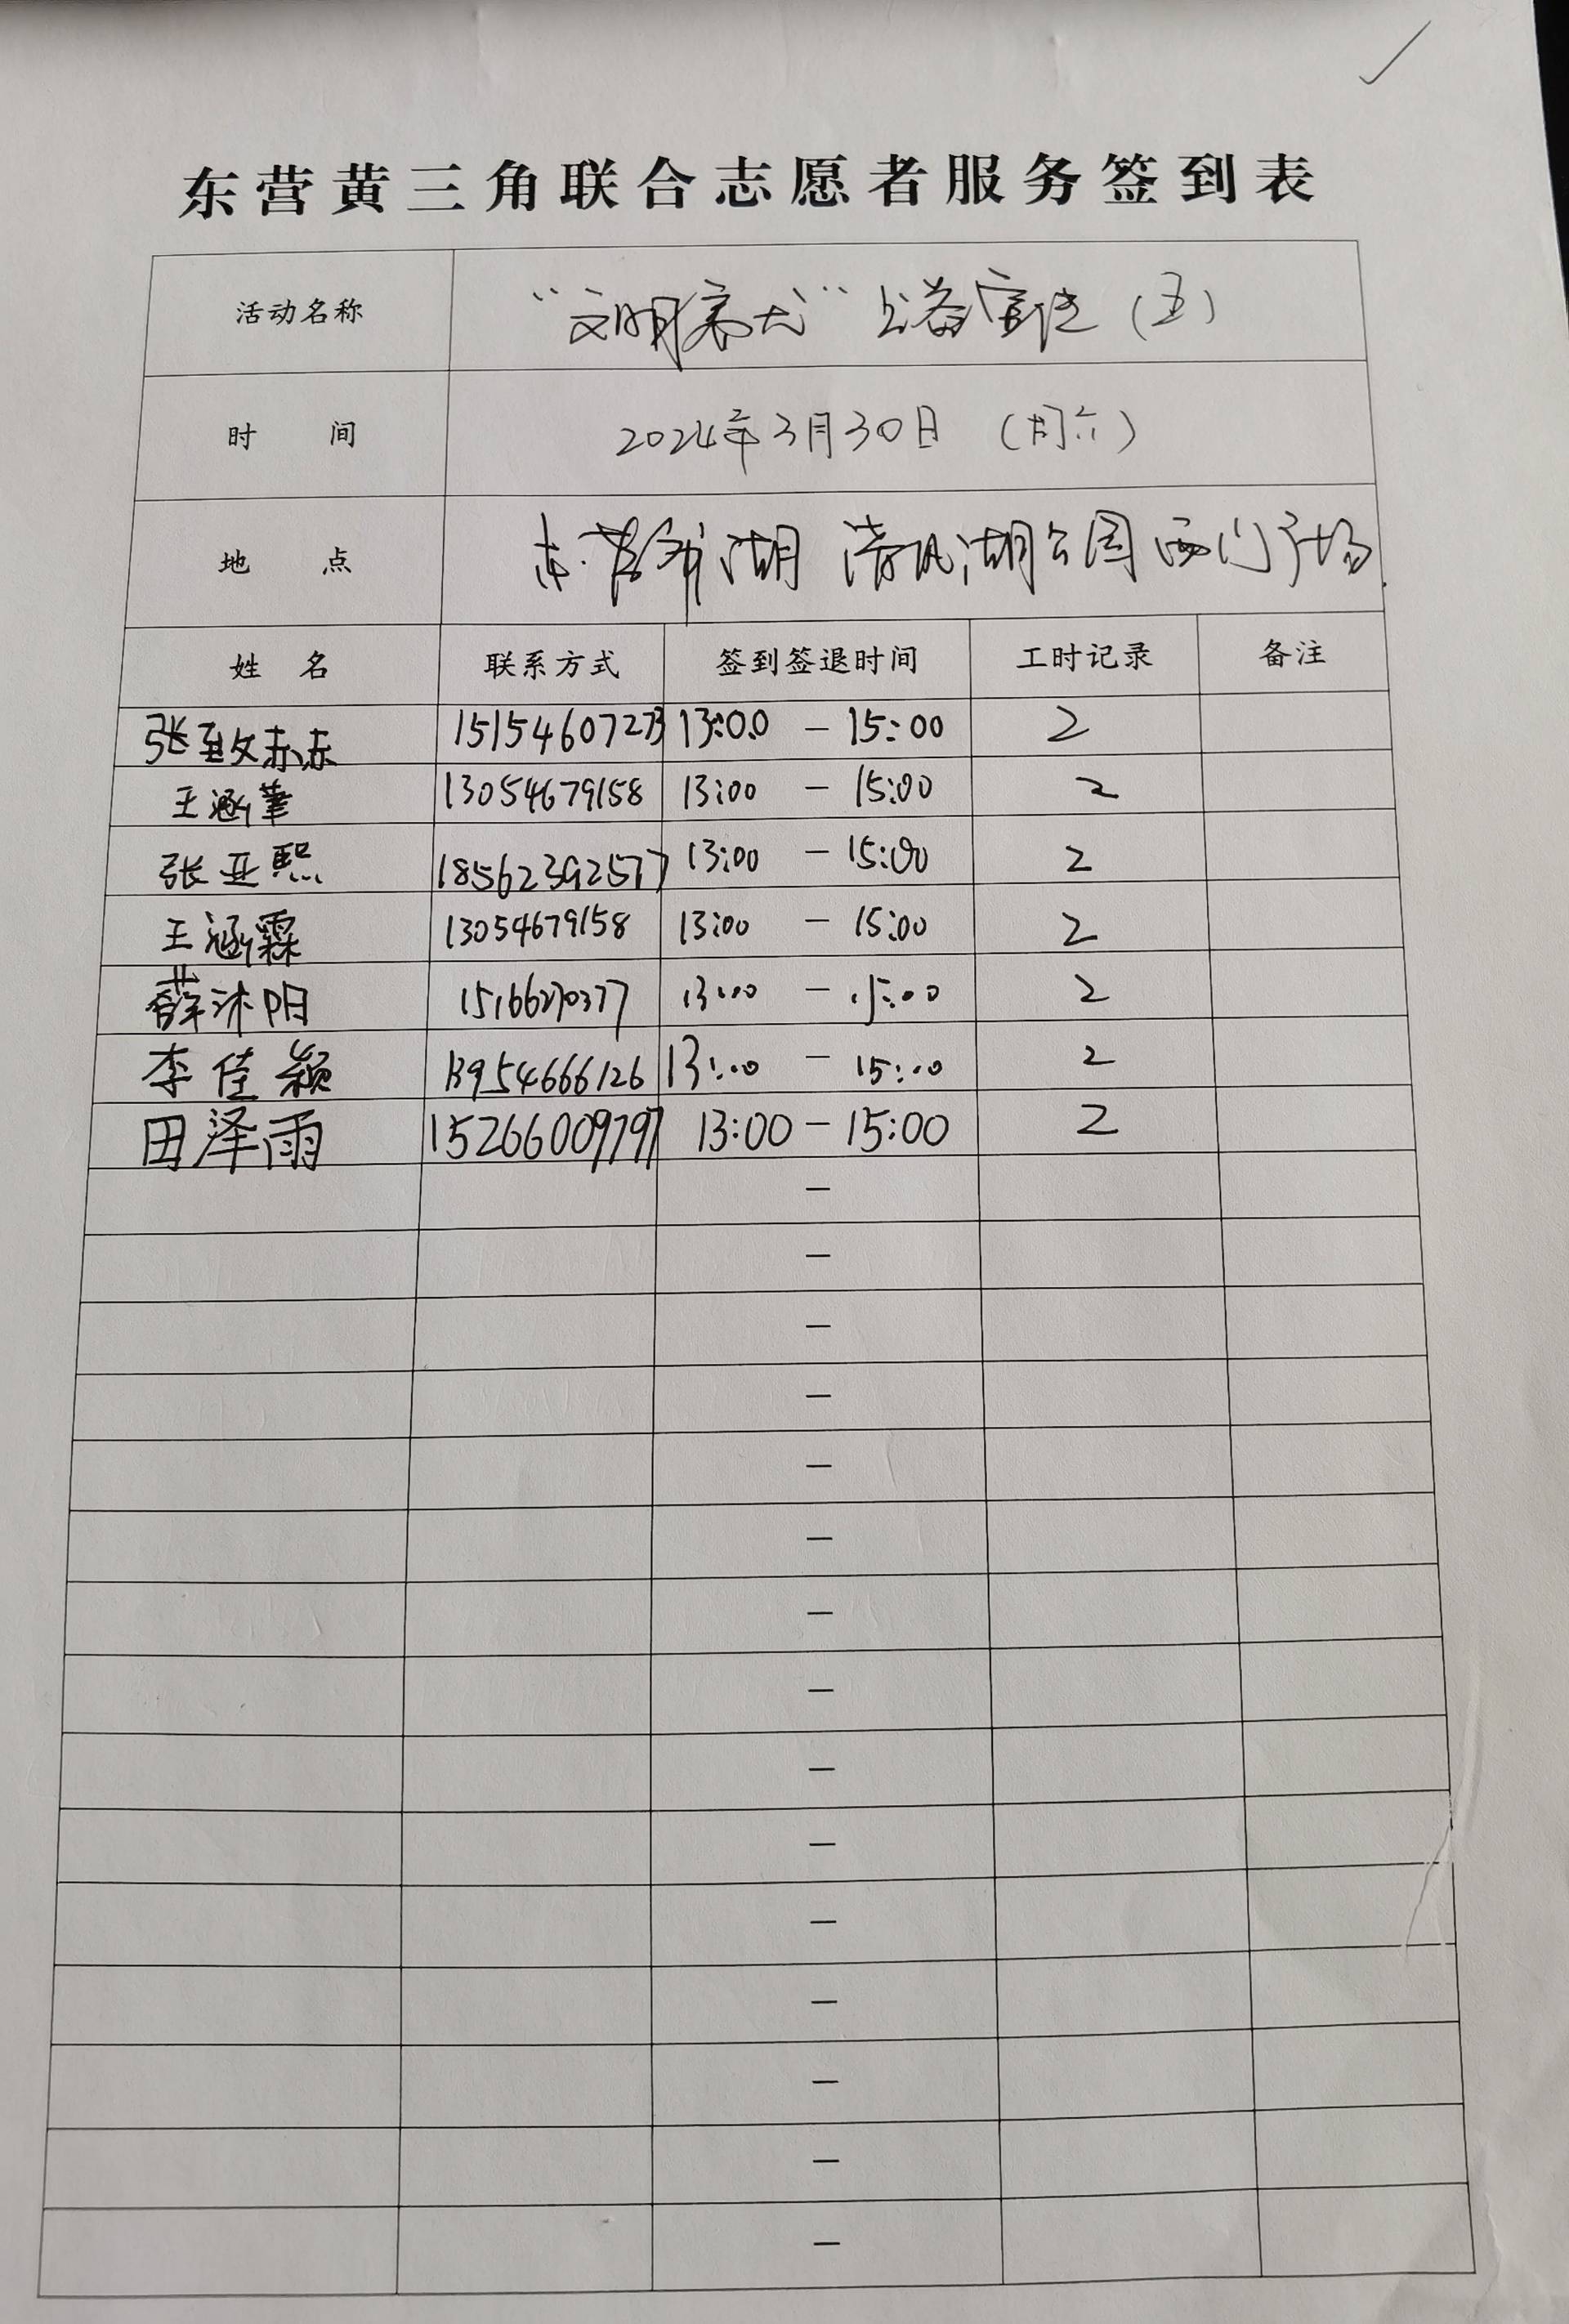 东营黄三角联合志愿者服务签到表
活动名称 "文明养犬" 公益宣传 (五)
时 间 2024年3月30日 (周六)
地 点 清风湖公园西门广场
姓 名 联系方式 签到签退时间 工时记录 备注
张 13:00 - 15:00 2
王涵 13054679158 13:00 - 15:00 2
张亚熙 18562392577 13:00 - 15:00 2
王涵霖 13054679158 13:00 - 15:00 2
薛沐阳 15166270377 13:00 - 15:00 2
李佳颖 13954666126 13:00 - 15:00 2
田泽雨 15266009797 13:00 - 15:00 2
-
-
-
-
-
-
-
-
-
-
-
-
-
-
-